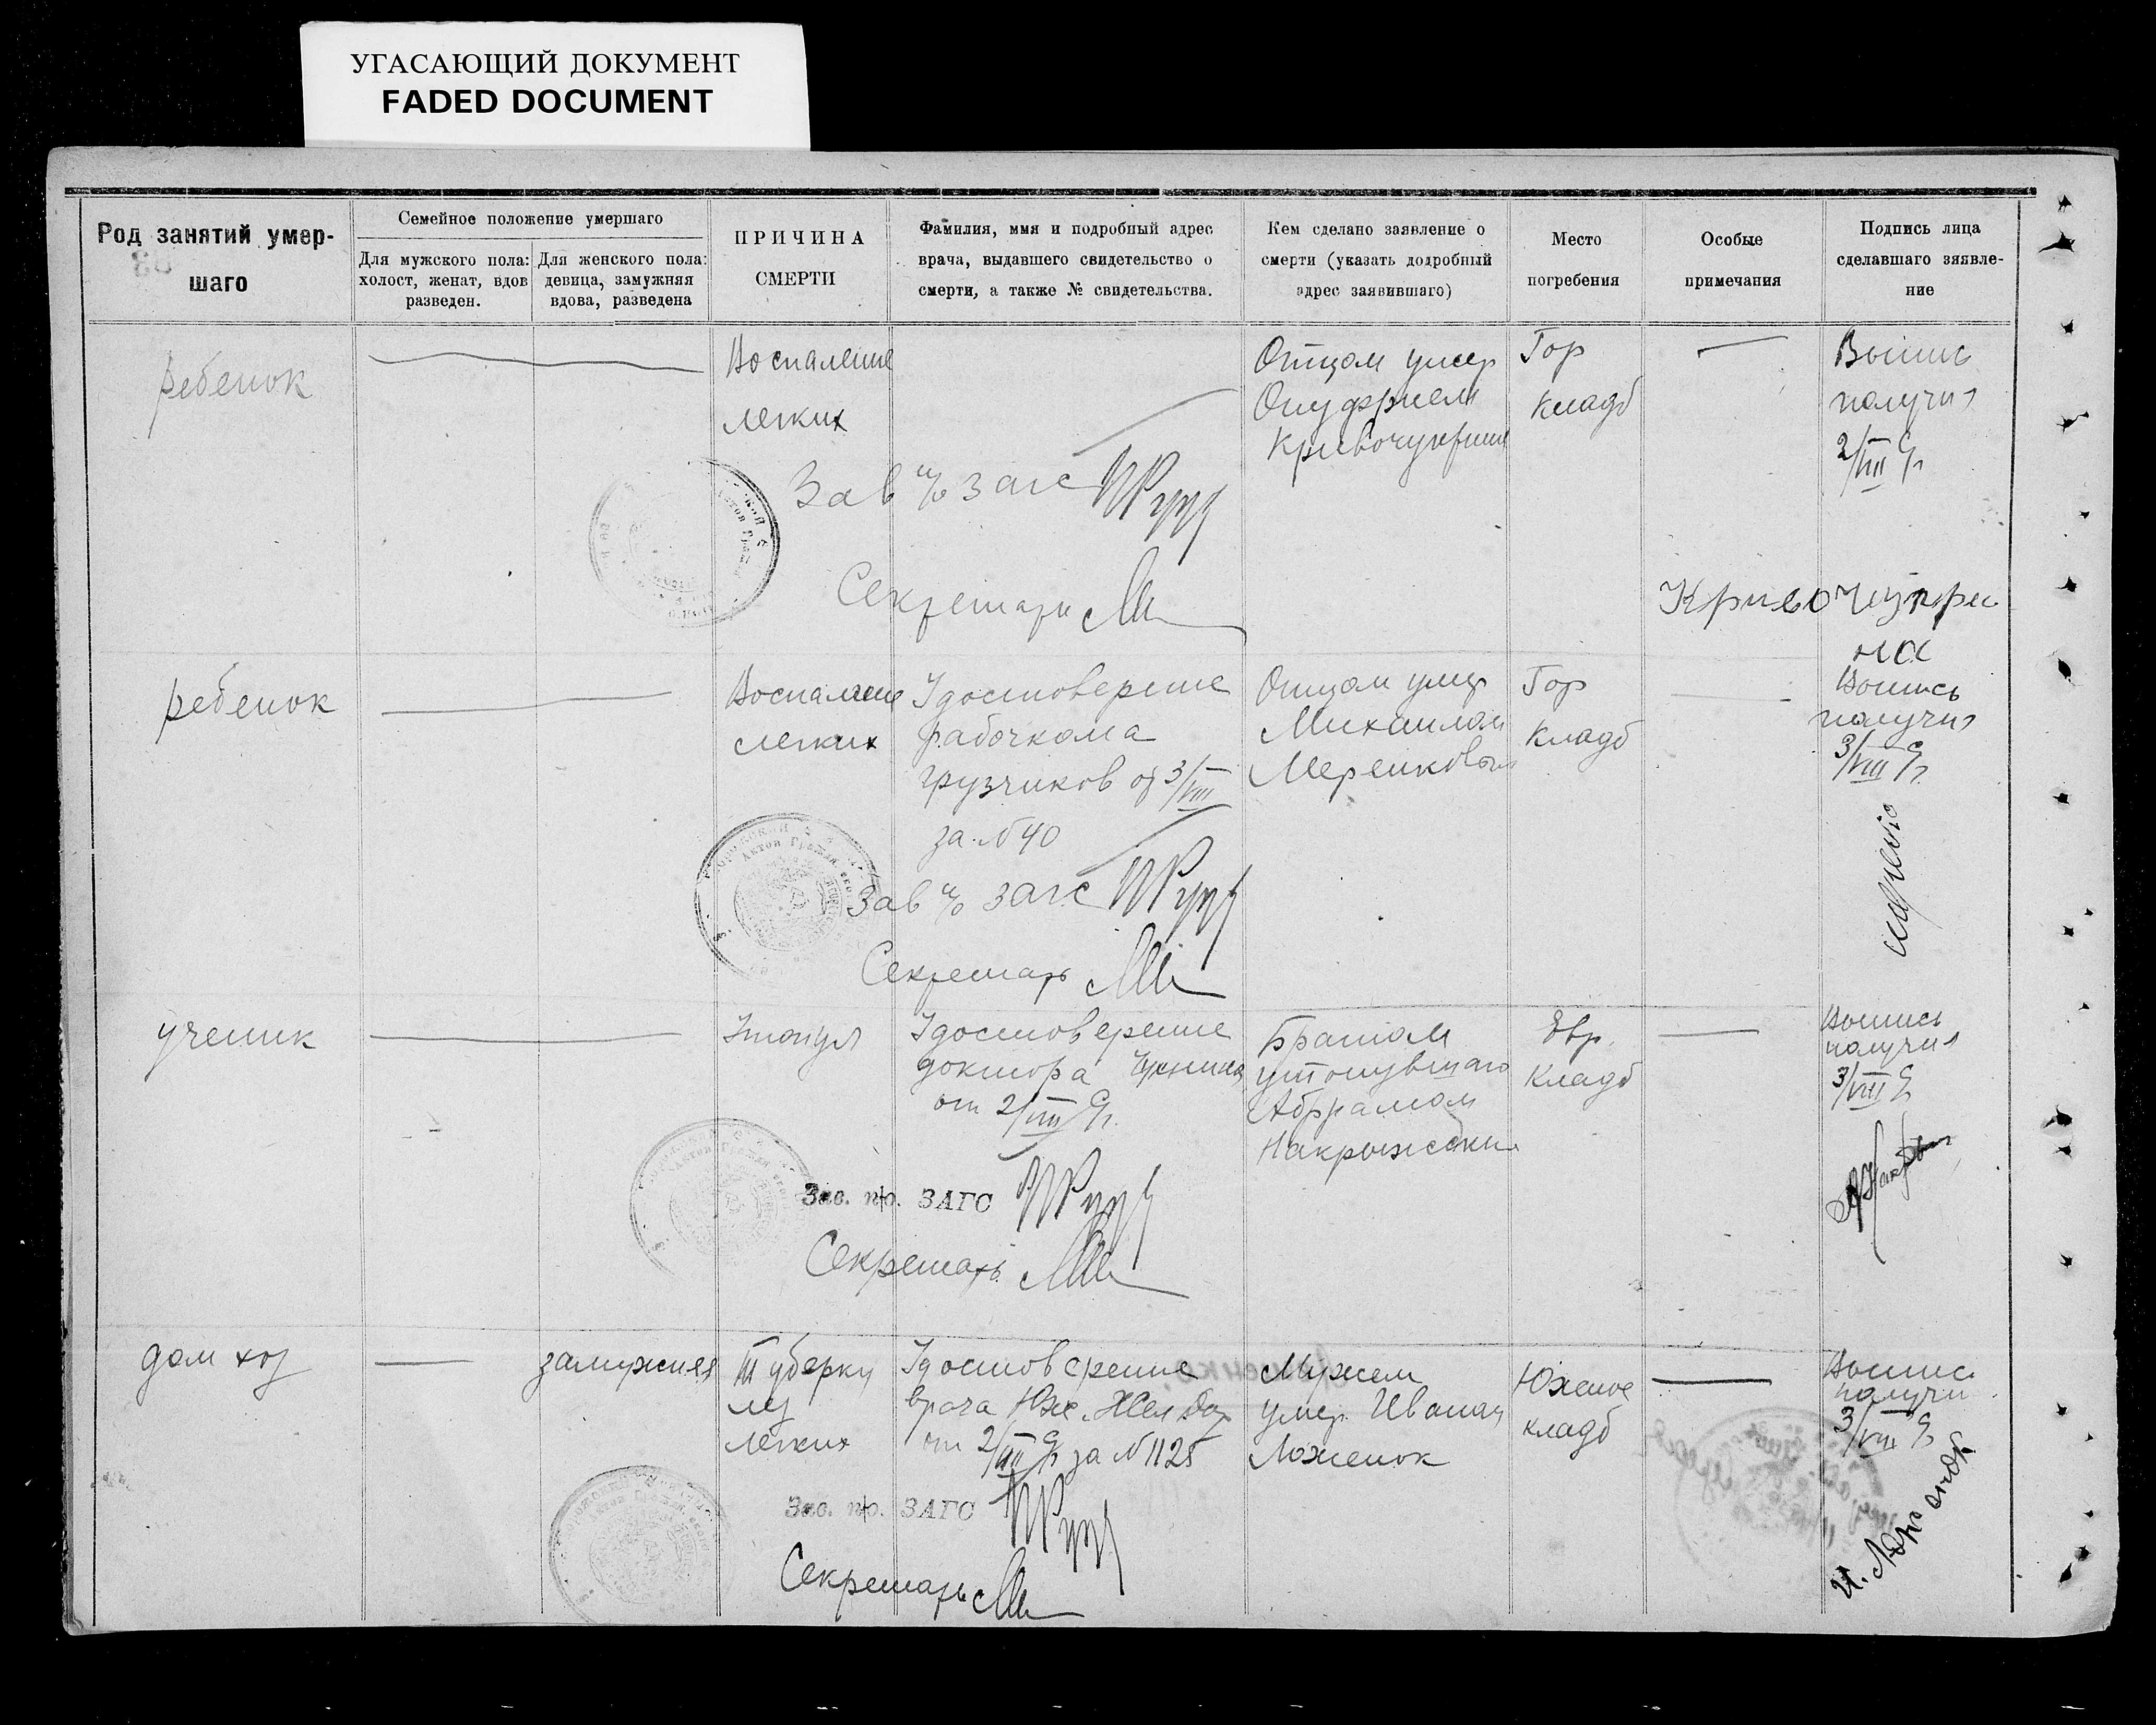 УГАСАЮЩИЙ ДОКУМЕНТ
FADED DOCUMENT
Род занятий умер-
шаго
Семейное положение умершаго
Для мужского пола:
холост, женат, вдов
разведен.
Для женского пола:
девица, замужняя
вдова, разведена
ПРИЧИНА
СМЕРТИ
Фамилия, имя и подробный адрес
врача, выдавшего свидетельство о
смерти, а также № свидетельства.
Кем сделано заявление о
смерти (указать додробный
адрес заявившаго)
Место
погребения
Особые
примечания
Подпись лица
сделавшаго зяявле-
ние
ребенок
Воспаление
легких
Отцом умер
Онуфрием
Гор
кладб
Выпис
получил
2/VIII
Зав п/о загс
Секретарь
Кривочупри
на
ребенок
Воспаление
легких
Удостоверение
рабочкома
грузчиков от 3/VIII
за № 40
Отцом умер
Михаилом
Меренковым
Гор
кладб
Выпись
получил
3/VIII
Зав п/о загс
Секретарь
ученик
Утонул
Удостоверение
доктора
от 2/VIII
Братом
утонувшаго
Абрамом
Накрыжским
Евр.
кладб
Выпись
получил
3/VIII
Зав. п/о. ЗАГС
Секретарь
дом хоз
замужняя
Туберку
лез
легких
Удостоверение
врача Юж. Жел Дор
от 2/VIII за № 1125
Мужем
умер. Иваном
Ложенок
Южное
кладб
Выпис
получил
3/VIII
Зав. п/о. ЗАГС
Секретарь